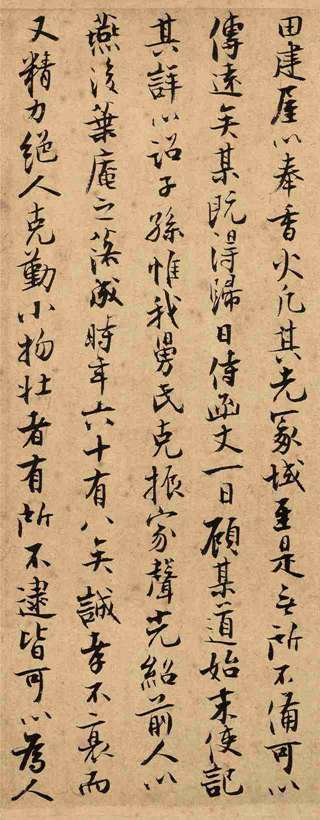 田建屋以奉香火凡其先冢域至是無所不備可以
傳遠矣某既得歸日侍函丈一日顧某道始末使記
其詳以詔子孫惟我舅氏克振家聲光紹前人以
燕後葉庵之落成時年六十有八矣誠孝不衰而
又精力絕人克勤小物壯者有所不逮皆可以為人